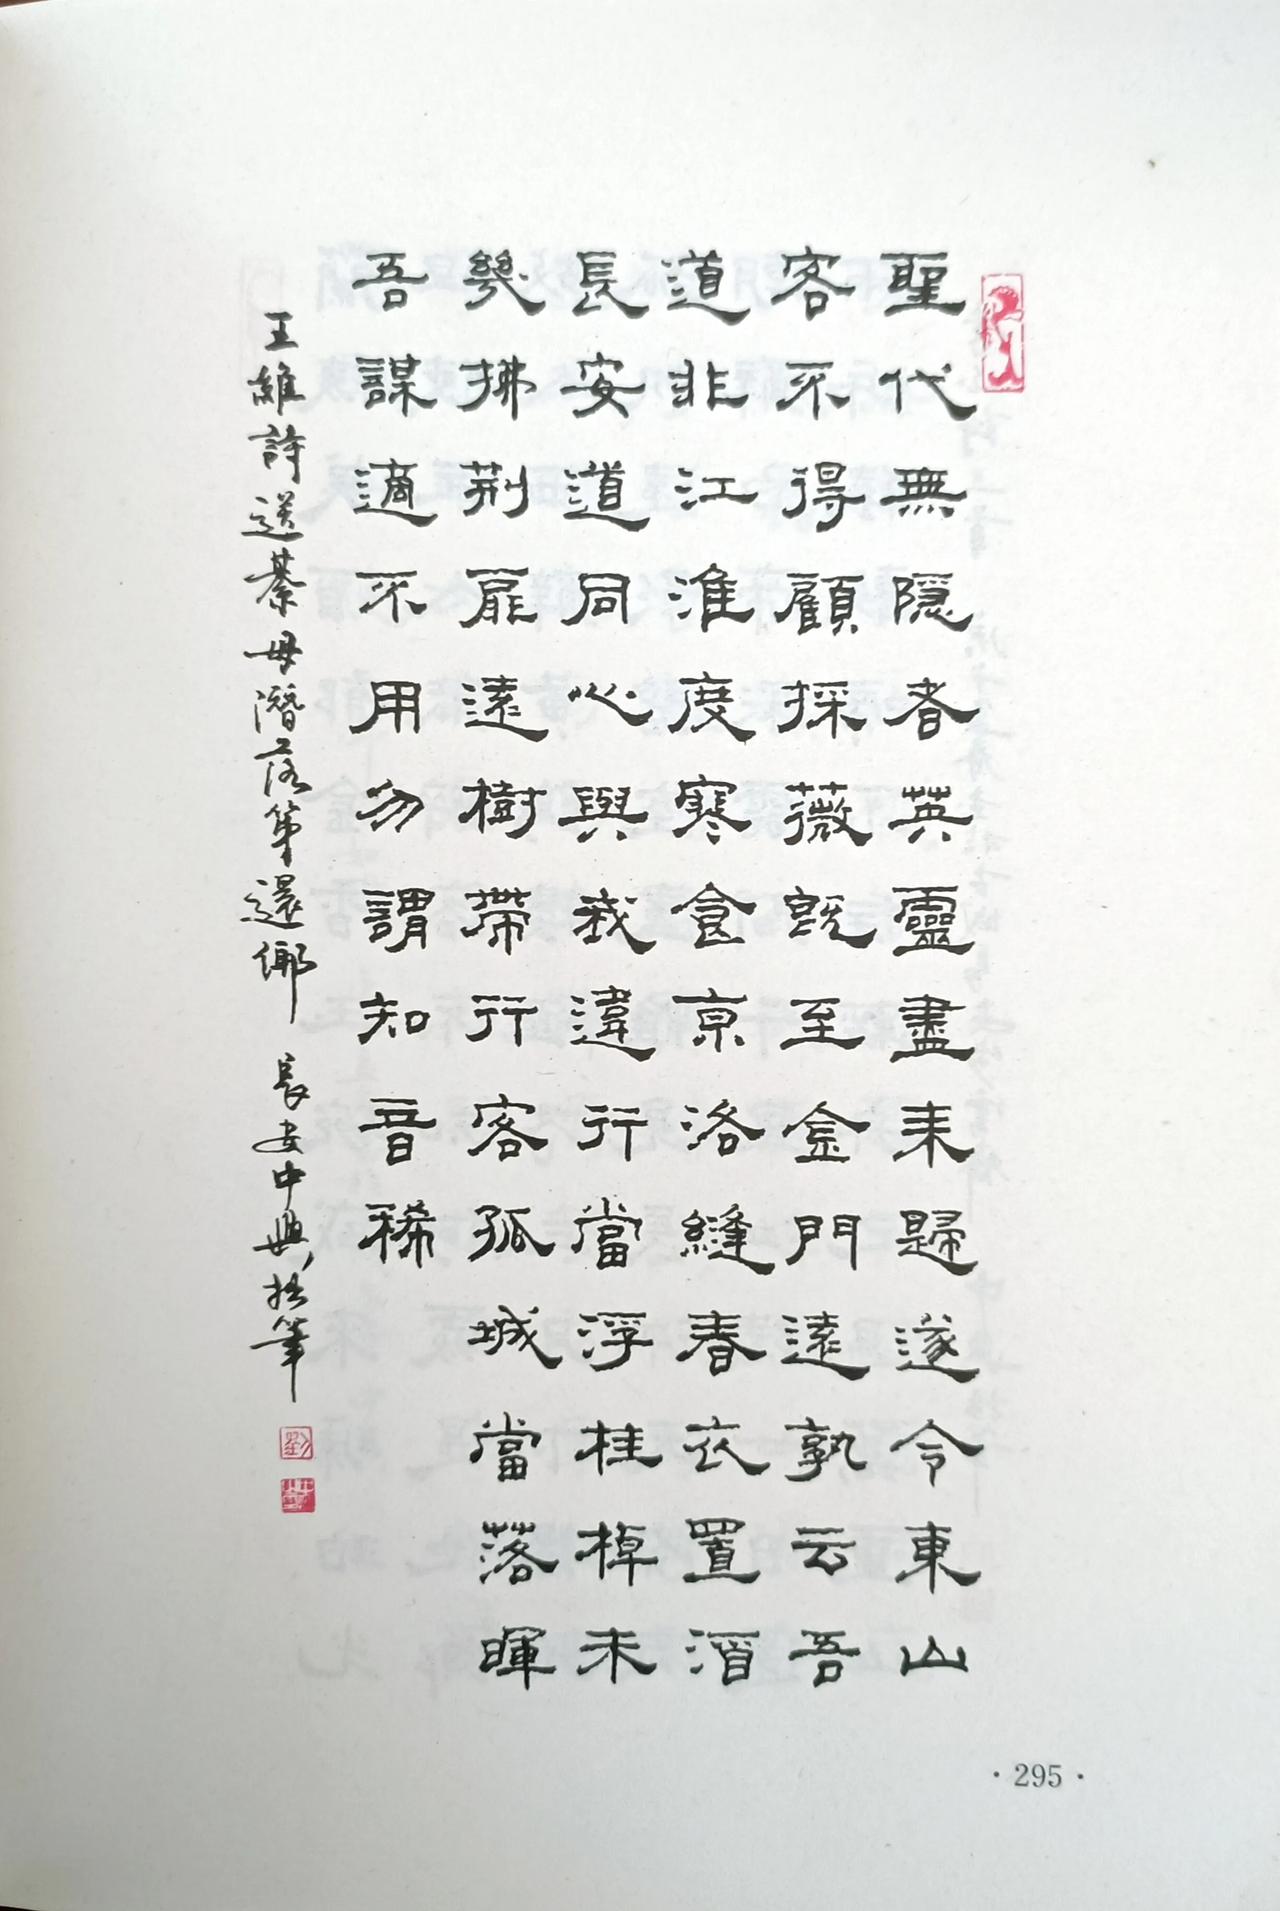 聖代無隱者英靈盡来歸遂令東山
客不得顧採薇既至金門遠孰云吾
道非江淮度寒食京洛縫春衣置酒
長安道同心與我違行當浮桂棹未
幾拂荆扉遠樹帶行客孤城當落暉
吾謀適不用勿謂知音稀
王維詩送綦毋潛落第還鄉 長安中興拙筆
劉
·295·